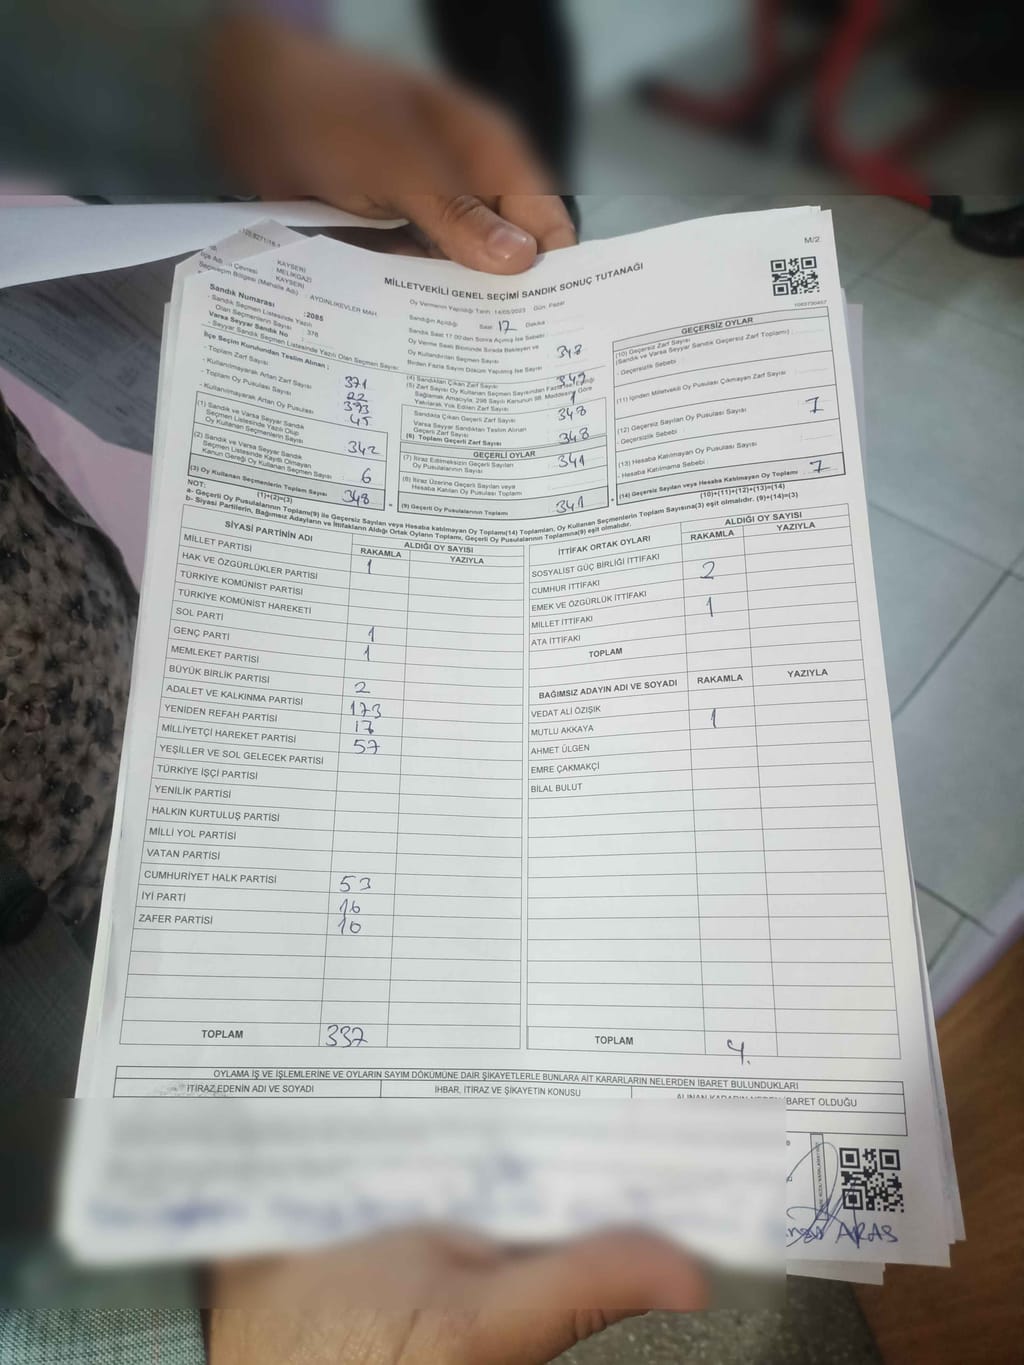 M/2
1063730457
KAYSERİ
MELİKGAZİ
KAYSERİ
Seçim Bölgesi (Mahalle Adı) : AYDINLIKEVLER MAH.
MİLLETVEKİLİ GENEL SEÇİMİ SANDIK SONUÇ TUTANAĞI
Sandık Numarası :2085
- Sandık Seçmen Listesinde Yazılı
Olan Seçmenlerin Sayısı : 376
Varsa Seyyar Sandık No :
- Seyyar Sandık Seçmen Listesinde Yazılı Olan Seçmen Sayısı:
İlçe Seçim Kurulundan Teslim Alınan ;
- Toplam Zarf Sayısı: 371
- Kullanılmayarak Artan Zarf Sayısı: 22
- Toplam Oy Pusulası Sayısı: 393
- Kullanılmayarak Artan Oy Pusulası 45
(1) Sandık ve Varsa Seyyar Sandık
Seçmen Listesinde Yazılı Olup
Oy Kullanan Seçmenlerin Sayısı 342
(2) Sandık ve Varsa Seyyar Sandık
Seçmen Listesinde Kayıtlı Olmayan
Kanun Gereği Oy Kullanan Seçmen Sayısı 6
(3) Oy Kullanan Seçmenlerin Toplam Sayısı 348
(1)+(2)=(3)
Oy Vermenin Yapıldığı Tarih: 14/05/2023 Gün: Pazar
Sandığın Açıldığı Saat 17 Dakika :
Sandık Saat 17.00'den Sonra Açılmış İse Sebebi :
Oy Verme Saati Bitiminde Sırada Bekleyen ve
Oy Kullandırılan Seçmen Sayısı
Birden Fazla Sayım Döküm Yapılmış İse Sayısı
(4) Sandıktan Çıkan Zarf Sayısı 349
(5) Zarf Sayısı Oy Kullanan Seçmen Sayısından Fazla İse Eşitliği
Sağlamak Amacıyla; 298 Sayılı Kanunun 98. Maddesine Göre
Yakılarak Yok Edilen Zarf Sayısı 1
Sandıkta Çıkan Geçerli Zarf Sayısı 348
Varsa Seyyar Sandıktan Teslim Alınan
Geçerli Zarf Sayısı
(6) Toplam Geçerli Zarf Sayısı 348
GEÇERLİ OYLAR
(7) İtiraz Edilmeksizin Geçerli Sayılan
Oy Pusulalarının Sayısı 341
(8) İtiraz Üzerine Geçerli Sayılan veya
Hesaba Katılan Oy Pusulası Toplamı
(9) Geçerli Oy Pusulalarının Sayısı 341
GEÇERSİZ OYLAR
(10) Geçersiz Zarf Sayısı
(Sandık ve Varsa Seyyar Sandık Geçersiz Zarf Toplamı) :
- Geçersizlik Sebebi
(11) İçinden Milletvekili Oy Pusulası Çıkmayan Zarf Sayısı
(12) Geçersiz Sayılan Oy Pusulası Sayısı 7
- Geçersizlik Sebebi
(13) Hesaba Katılmayan Oy Pusulası Sayısı
- Hesaba Katılmama Sebebi :
(14) Geçersiz Sayılan veya Hesaba Katılmayan Oy Toplamı 7
(10)+(11)+(12)+(13)=(14)
NOT:
a- Geçerli Oy Pusulalarının Toplamı(9) ile Geçersiz Sayılan veya Hesaba katılmayan Oy Toplamı(14) Toplamları, Oy Kullanan Seçmenlerin Toplam Sayısına(3) eşit olmalıdır. (9)+(14)=(3)
b- Siyasi Partilerin, Bağımsız Adayların ve İttifakların Aldığı Ortak Oyların Toplamı, Geçerli Oy Pusulalarının Toplamına(9) eşit olmalıdır.
SİYASİ PARTİNİN ADI ALDIĞI OY SAYISI
RAKAMLA YAZIYLA
MİLLET PARTİSİ 1
HAK VE ÖZGÜRLÜKLER PARTİSİ
TÜRKİYE KOMÜNİST PARTİSİ
TÜRKİYE KOMÜNİST HAREKETİ
SOL PARTİ
GENÇ PARTİ 1
MEMLEKET PARTİSİ 1
BÜYÜK BİRLİK PARTİSİ 2
ADALET VE KALKINMA PARTİSİ 173
YENİDEN REFAH PARTİSİ 17
MİLLİYETÇİ HAREKET PARTİSİ 57
YEŞİLLER VE SOL GELECEK PARTİSİ
TÜRKİYE İŞÇİ PARTİSİ
YENİLİK PARTİSİ
HALKIN KURTULUŞ PARTİSİ
MİLLİ YOL PARTİSİ
VATAN PARTİSİ
CUMHURİYET HALK PARTİSİ 53
İYİ PARTİ 16
ZAFER PARTİSİ 10
TOPLAM 337
İTTİFAK ORTAK OYLARI ALDIĞI OY SAYISI
RAKAMLA YAZIYLA
SOSYALİST GÜÇ BİRLİĞİ İTTİFAKI
CUMHUR İTTİFAKI 2
EMEK VE ÖZGÜRLÜK İTTİFAKI
MİLLET İTTİFAKI 1
ATA İTTİFAKI
TOPLAM
BAĞIMSIZ ADAYIN ADI VE SOYADI RAKAMLA YAZIYLA
VEDAT ALİ ÖZIŞIK
MUTLU AKKAYA 1
AHMET ÜLGEN
EMRE ÇAKMAKÇİ
BİLAL BULUT
TOPLAM 4.
OYLAMA İŞ VE İŞLEMLERİNE VE OYLARIN SAYIM DÖKÜMÜNE DAİR ŞİKAYETLERLE BUNLARA AİT KARARLARIN NELERDEN İBARET BULUNDUKLARI
İTİRAZ EDENİN ADI VE SOYADI İHBAR, İTİRAZ VE ŞİKAYETİN KONUSU ALINAN KARARIN NEDEN İBARET OLDUĞU
ARAS